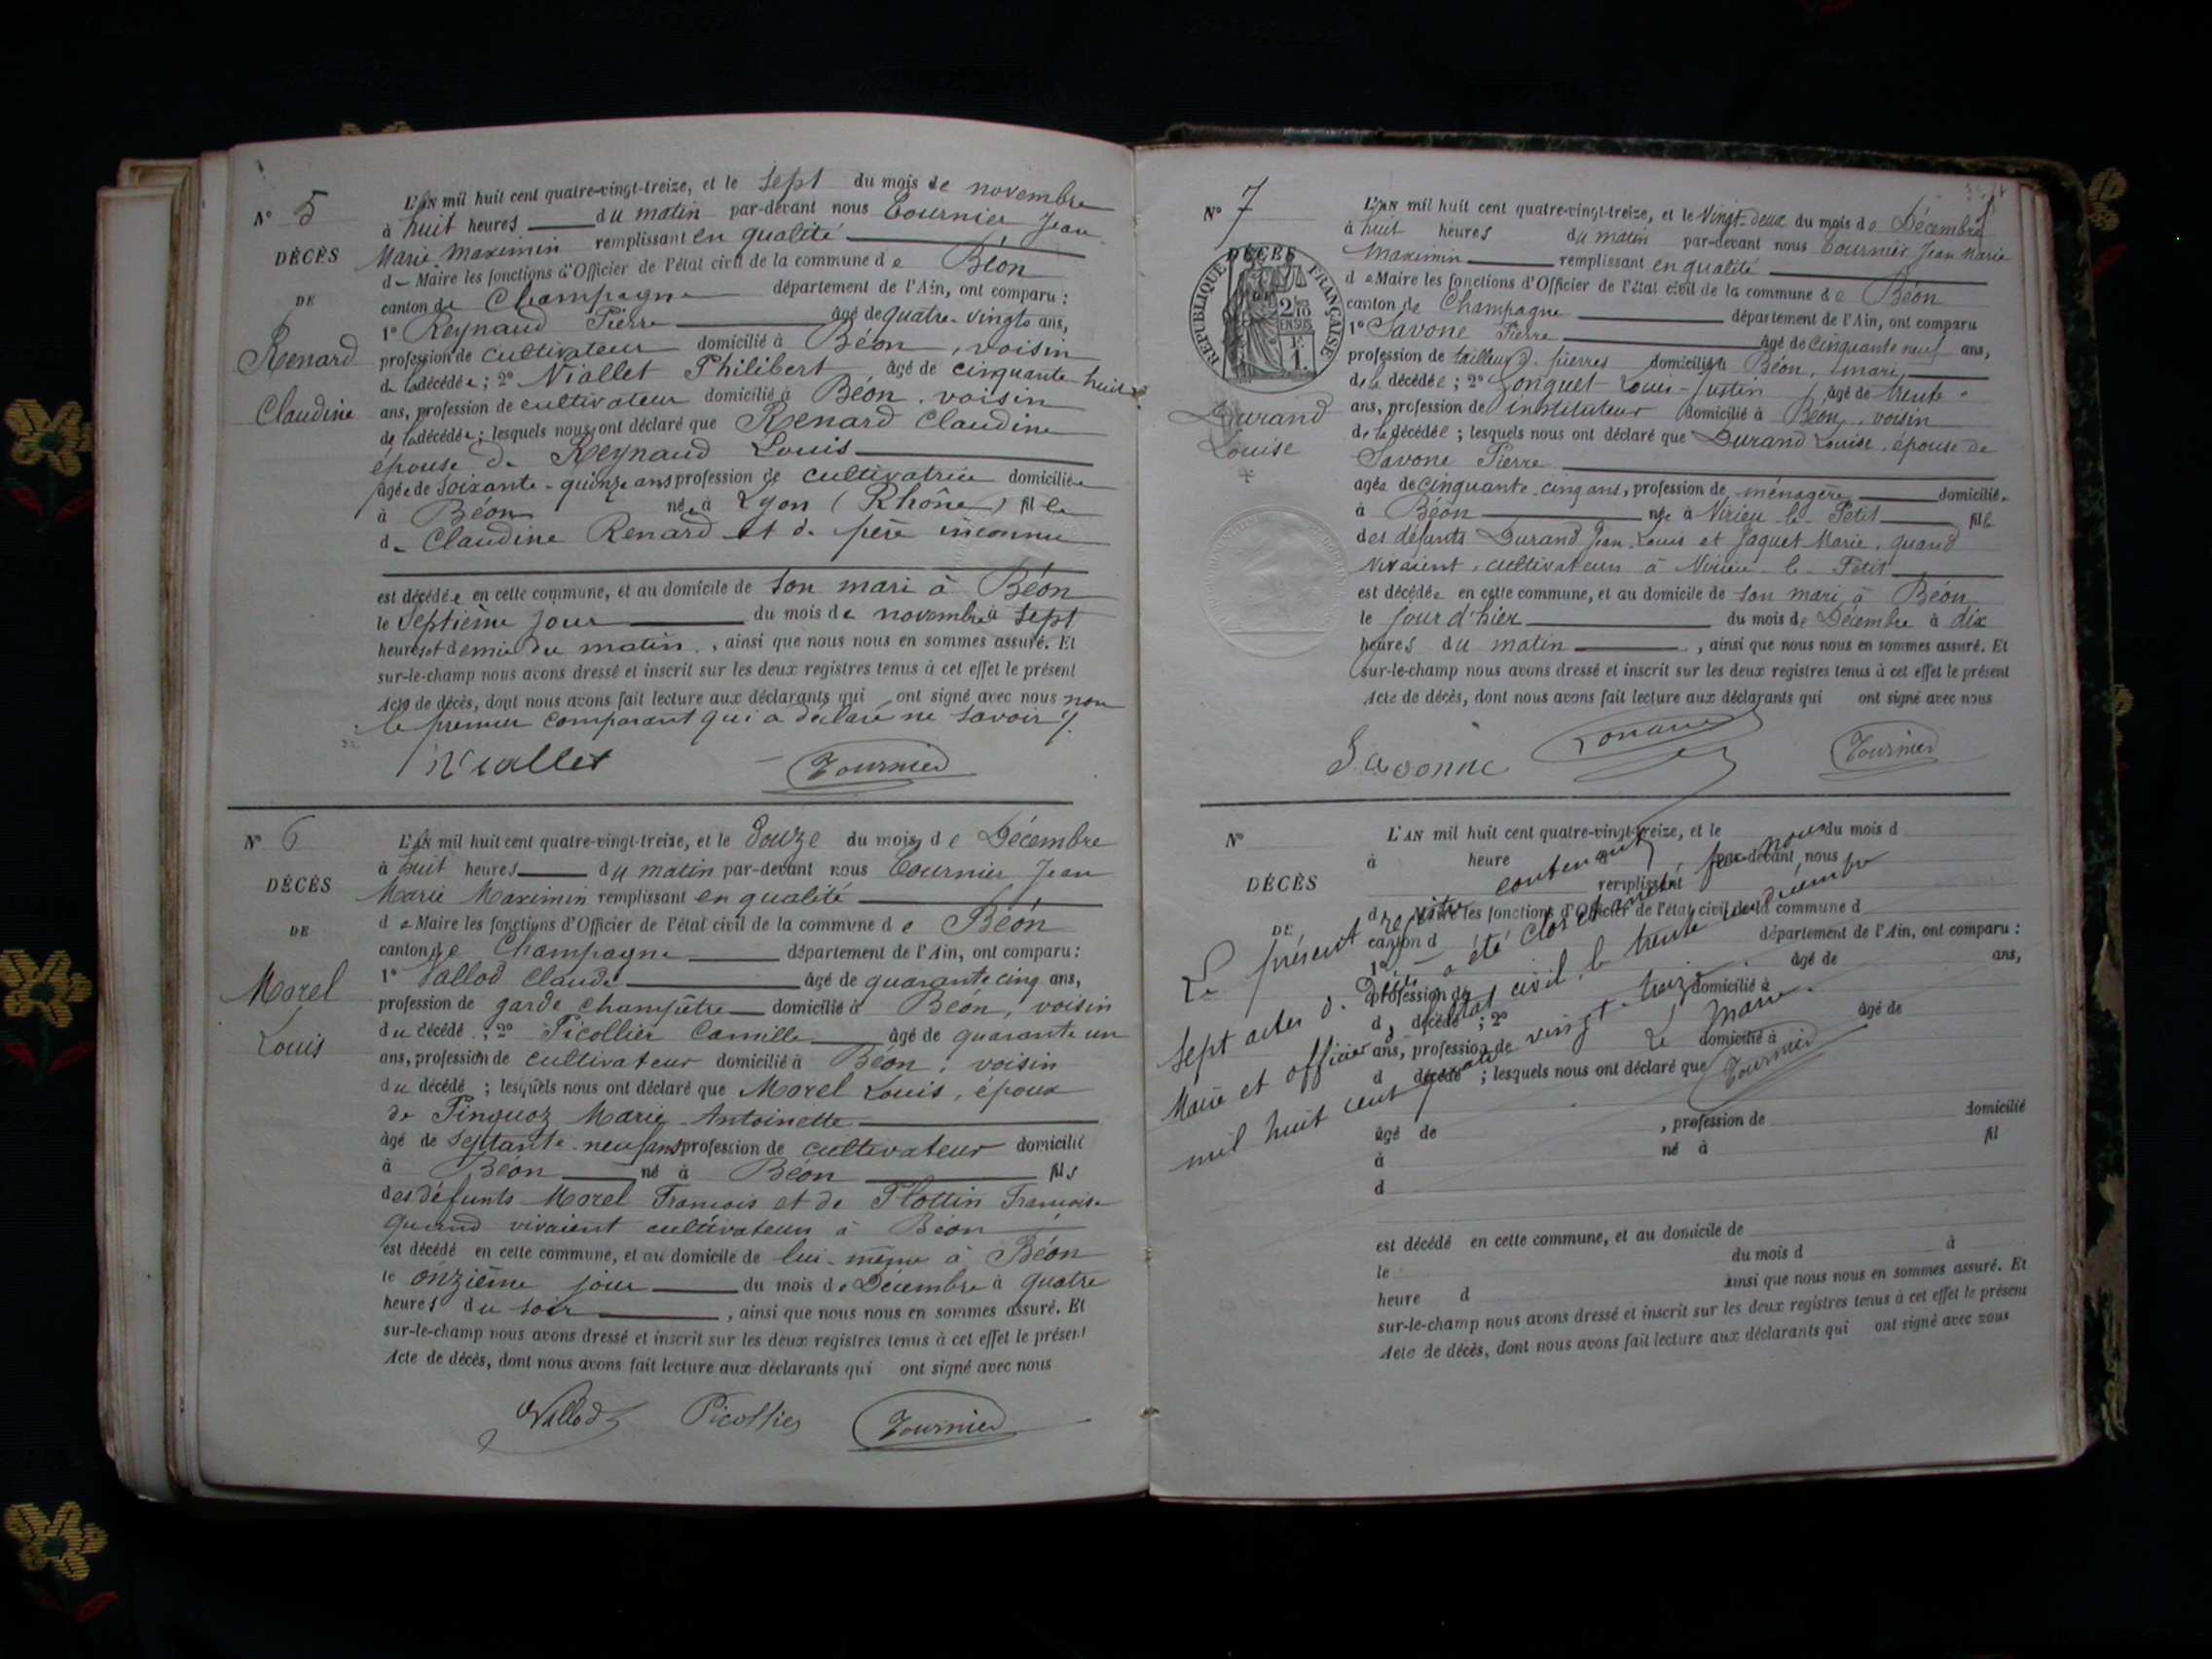 N° 5
DÉCÈS
DE
Renard
Claudine
L'AN mil huit cent quatre-vingt-treize, et le sept du mois de novembre
à huit heures du matin par-devant nous Tournier Jean
Marie Maximin remplissant en qualité
de Maire les fonctions d'Officier de l'état civil de la commune de Béon
canton de Champagne département de l'Ain, ont comparu :
1° Reynaud Pierre âgé de quatre-vingts ans,
profession de cultivateur domicilié à Béon, voisin
de la décédée ; 2° Niollet Philibert âgé de cinquante-huit
ans, profession de cultivateur domicilié à Béon, voisin
de la décédée ; lesquels nous ont déclaré que Renard Claudine
épouse de Reynaud Louis
âgée de soixante-quinze ans profession de cultivatrice domiciliée
à Béon née à Lyon (Rhône) fille
de Claudine Renard et de père inconnu
est décédée en cette commune, et au domicile de son mari à Béon
le septième jour du mois de novembre à sept
heures et demie du matin, ainsi que nous nous en sommes assuré. Et
sur-le-champ nous avons dressé et inscrit sur les deux registres tenus à cet effet le présent
Acte de décès, dont nous avons fait lecture aux déclarants qui ont signé avec nous non
le premier comparant qui a déclaré ne savoir
Niollet Tournier
N° 6
DÉCÈS
DE
Morel
Louis
L'AN mil huit cent quatre-vingt-treize, et le douze du mois de Décembre
à huit heures du matin par-devant nous Tournier Jean
Marie Maximin remplissant en qualité
de Maire les fonctions d'Officier de l'état civil de la commune de Béon
canton de Champagne département de l'Ain, ont comparu :
1° Vallod Claude âgé de quarante cinq ans,
profession de garde champêtre domicilié à Béon, voisin
du décédé ; 2° Picollier Camille âgé de quarante un
ans, profession de cultivateur domicilié à Béon, voisin
du décédé ; lesquels nous ont déclaré que Morel Louis, époux
de Pinguoz Marie-Antoinette
âgé de septante-neuf ans profession de cultivateur domicilié
à Béon né à Béon fils
des défunts Morel François et de Flottin Françoise
quand vivaient cultivateurs à Béon
est décédé en cette commune, et au domicile de lui-même à Béon
le onzième jour du mois de Décembre à quatre
heures du soir, ainsi que nous nous en sommes assuré. Et
sur-le-champ nous avons dressé et inscrit sur les deux registres tenus à cet effet le présent
Acte de décès, dont nous avons fait lecture aux déclarants qui ont signé avec nous
Vallod Picollier Tournier
N° 7
DÉCÈS
RÉPUBLIQUE FRANÇAISE
2/10
EN SUS
1F
Durand
Louise
L'AN mil huit cent quatre-vingt-treize, et le vingt-deux du mois de Décembre
à huit heures du matin par-devant nous Tournier Jean Marie
Maximin remplissant en qualité
de Maire les fonctions d'Officier de l'état civil de la commune de Béon
canton de Champagne département de l'Ain, ont comparu
1° Savone Pierre âgé de cinquante neuf ans,
profession de tailleur d. pierres domicilié à Béon, mari
de la décédée ; 2° Louis-Justin âgé de trente
ans, profession de instituteur domicilié à Béon, voisin
de la décédée ; lesquels nous ont déclaré que Durand Louise, épouse de
Savone Pierre
âgée de cinquante-cinq ans, profession de ménagère domiciliée
à Béon née à Virieu-le-Petit fille
des défunts Durand Jean-Louis et Jaquet Marie, quand
vivaient, cultivateurs à Virieu-le-Petit
est décédée en cette commune, et au domicile de son mari à Béon
le jour d'hier du mois de Décembre à dix
heures du matin, ainsi que nous nous en sommes assuré. Et
sur-le-champ nous avons dressé et inscrit sur les deux registres tenus à cet effet le présent
Acte de décès, dont nous avons fait lecture aux déclarants qui ont signé avec nous
Savonne Tournier
N°
DÉCÈS
DE
L'AN mil huit cent quatre-vingt-treize, et le du mois d
à heure par-devant nous
remplissant
d Maire les fonctions d'Officier de l'état civil de la commune d
canton d département de l'Ain, ont comparu :
1° âgé de ans,
profession de domicilié à
d décédé ; 2° âgé de
ans, profession de domicilié à
d décédé ; lesquels nous ont déclaré que
âgé de , profession de domicilié
à né à fil
d
est décédé en cette commune, et au domicile de
le du mois d à
heure d ainsi que nous nous en sommes assuré. Et
sur-le-champ nous avons dressé et inscrit sur les deux registres tenus à cet effet le présent
Acte de décès, dont nous avons fait lecture aux déclarants qui ont signé avec nous
Le présent registre contenant
sept actes d. Décès a été clos et arrêté par nous
Maire et officier d. l'état civil, le trente un décembre
mil huit cent quatre vingt-treize.
Le Maire.
Tournier